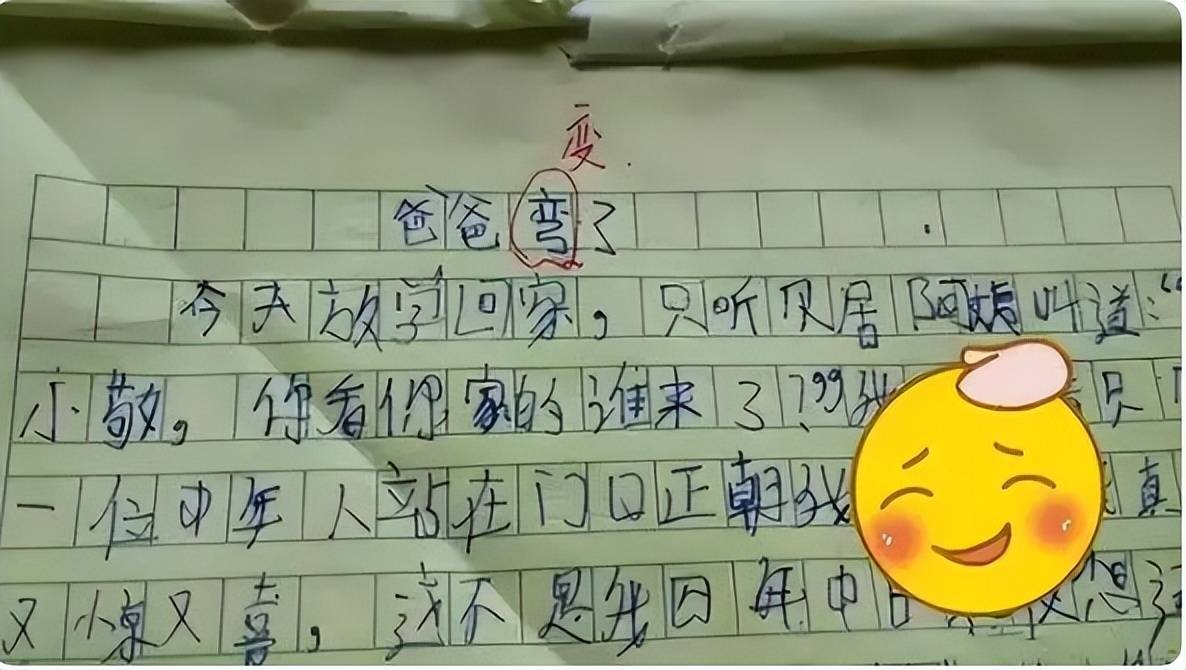 变
爸爸弯了
今天放学回家，只听居阿姨叫道：“
小敬，你看你家的谁来了？”我只
一位中年人站在门口正朝我真
又惊又喜，这不是我日中